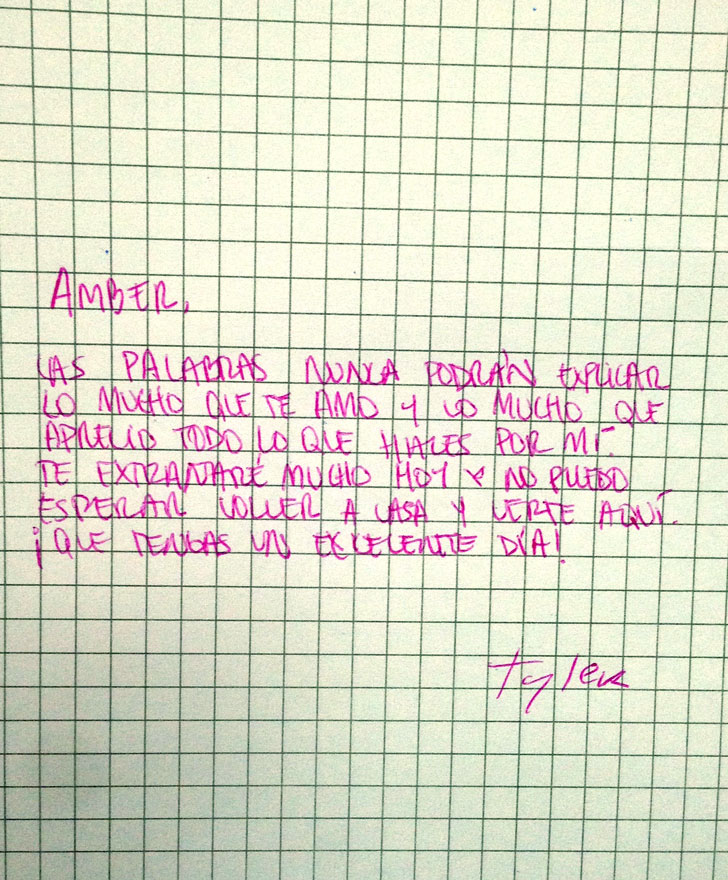 AMBER,
LAS PALABRAS NUNCA PODRÁN EXPLICAR
LO MUCHO QUE TE AMO Y LO MUCHO QUE
APRECIO TODO LO QUE HACES POR MÍ.
TE EXTRAÑARÉ MUCHO HOY Y NO PUEDO
ESPERAR VOLVER A CASA Y VERTE AQUÍ.
¡QUE TENGAS UN EXCELENTE DÍA!
Tyler